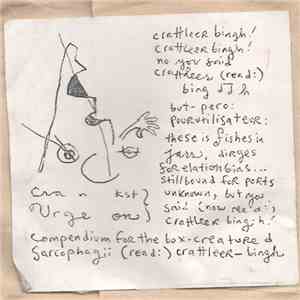 crattleer bingh!
crattleer bingh!
no you said
crattleer (read:)
bing d J h
but - pero:
pour utilisateur:
these is fishes in
jars, dirges
for elation bias...
still bound for ports
unknown, but you
said (now re
crattleer bing:h!
Cra n kst }
Urge on }
compendium for the box-creature d
sarcophagii (read:) crattleer-bingh